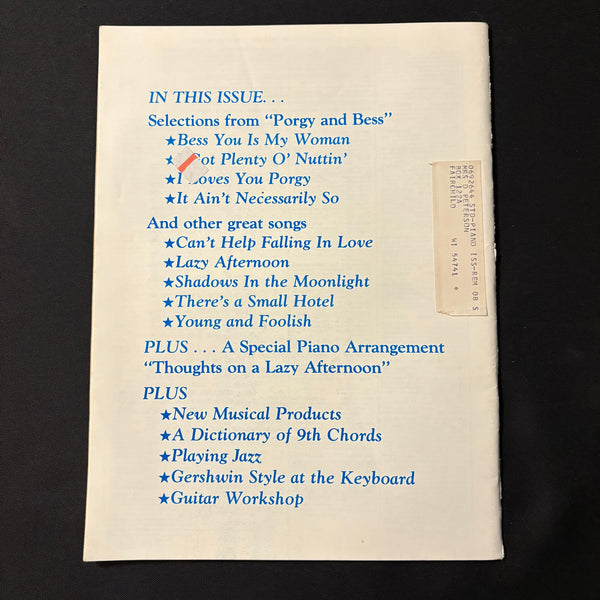 IN THIS ISSUE. . .
Selections from "Porgy and Bess"
★Bess You Is My Woman
★ Got Plenty O' Nuttin'
★I Loves You Porgy
★It Ain't Necessarily So
And other great songs
★Can't Help Falling In Love
★Lazy Afternoon
★Shadows In the Moonlight
★There's a Small Hotel
★Young and Foolish
PLUS . . . A Special Piano Arrangement
"Thoughts on a Lazy Afternoon"
PLUS
★New Musical Products
★A Dictionary of 9th Chords
★Playing Jazz
★Gershwin Style at the Keyboard
★Guitar Workshop
0692644 STD-PIANO ISS-REM 08 S
MRS D PETERSON
BOX 127A
FAIRCHILD WI 54741 *